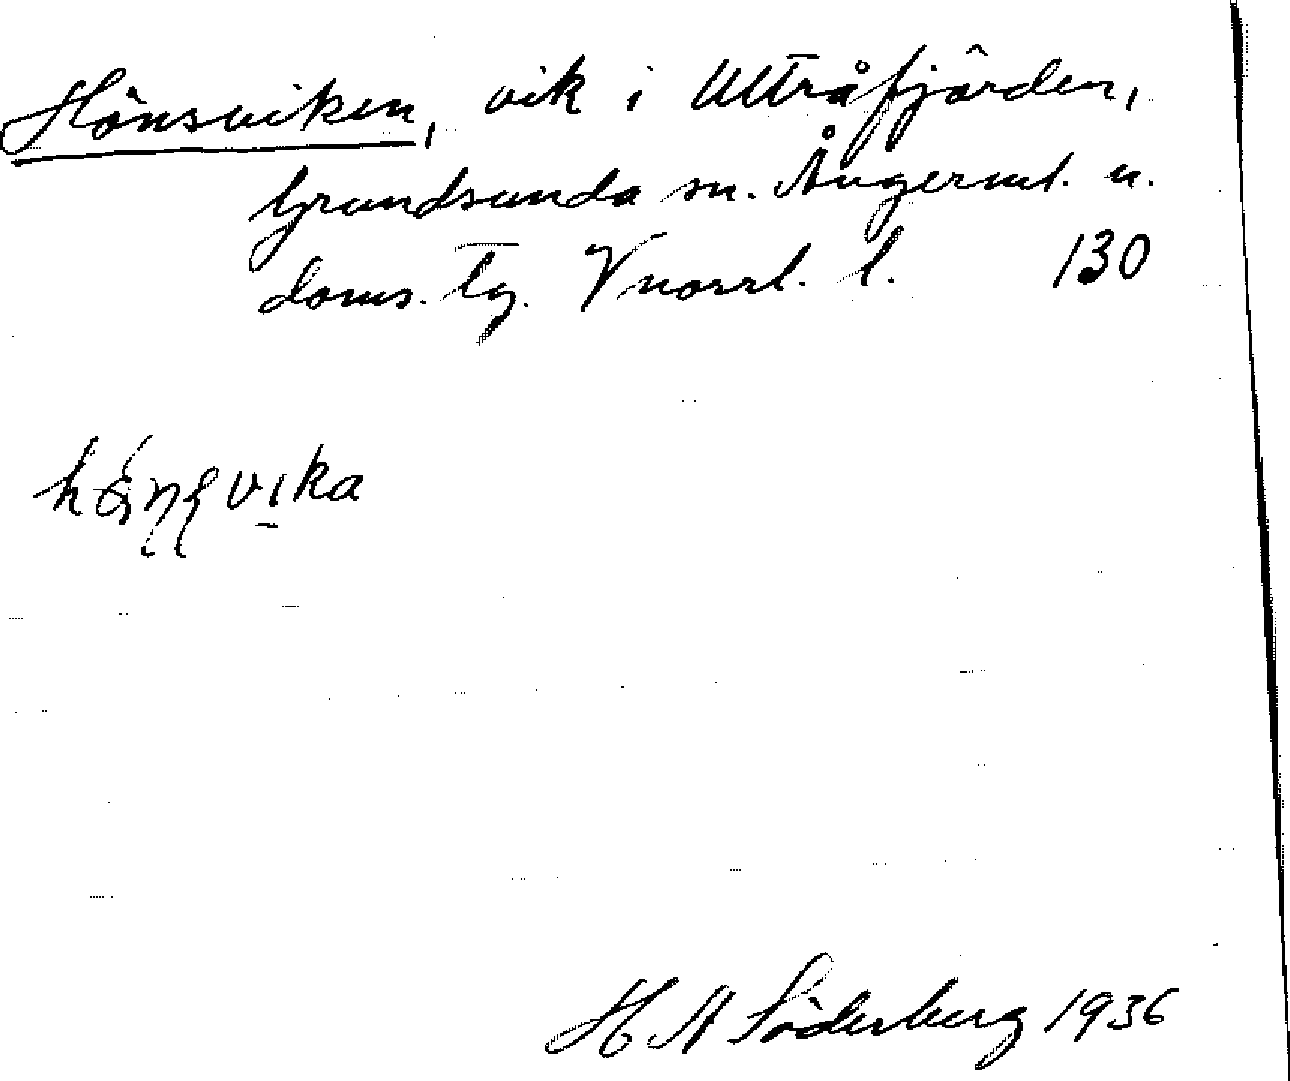 Hönsviken, vik i Ultråfjärden,
Grundsunda sn. Ångerml. n.
doms. tg. Vnorrl. l. 130
H A Söderberg 1936